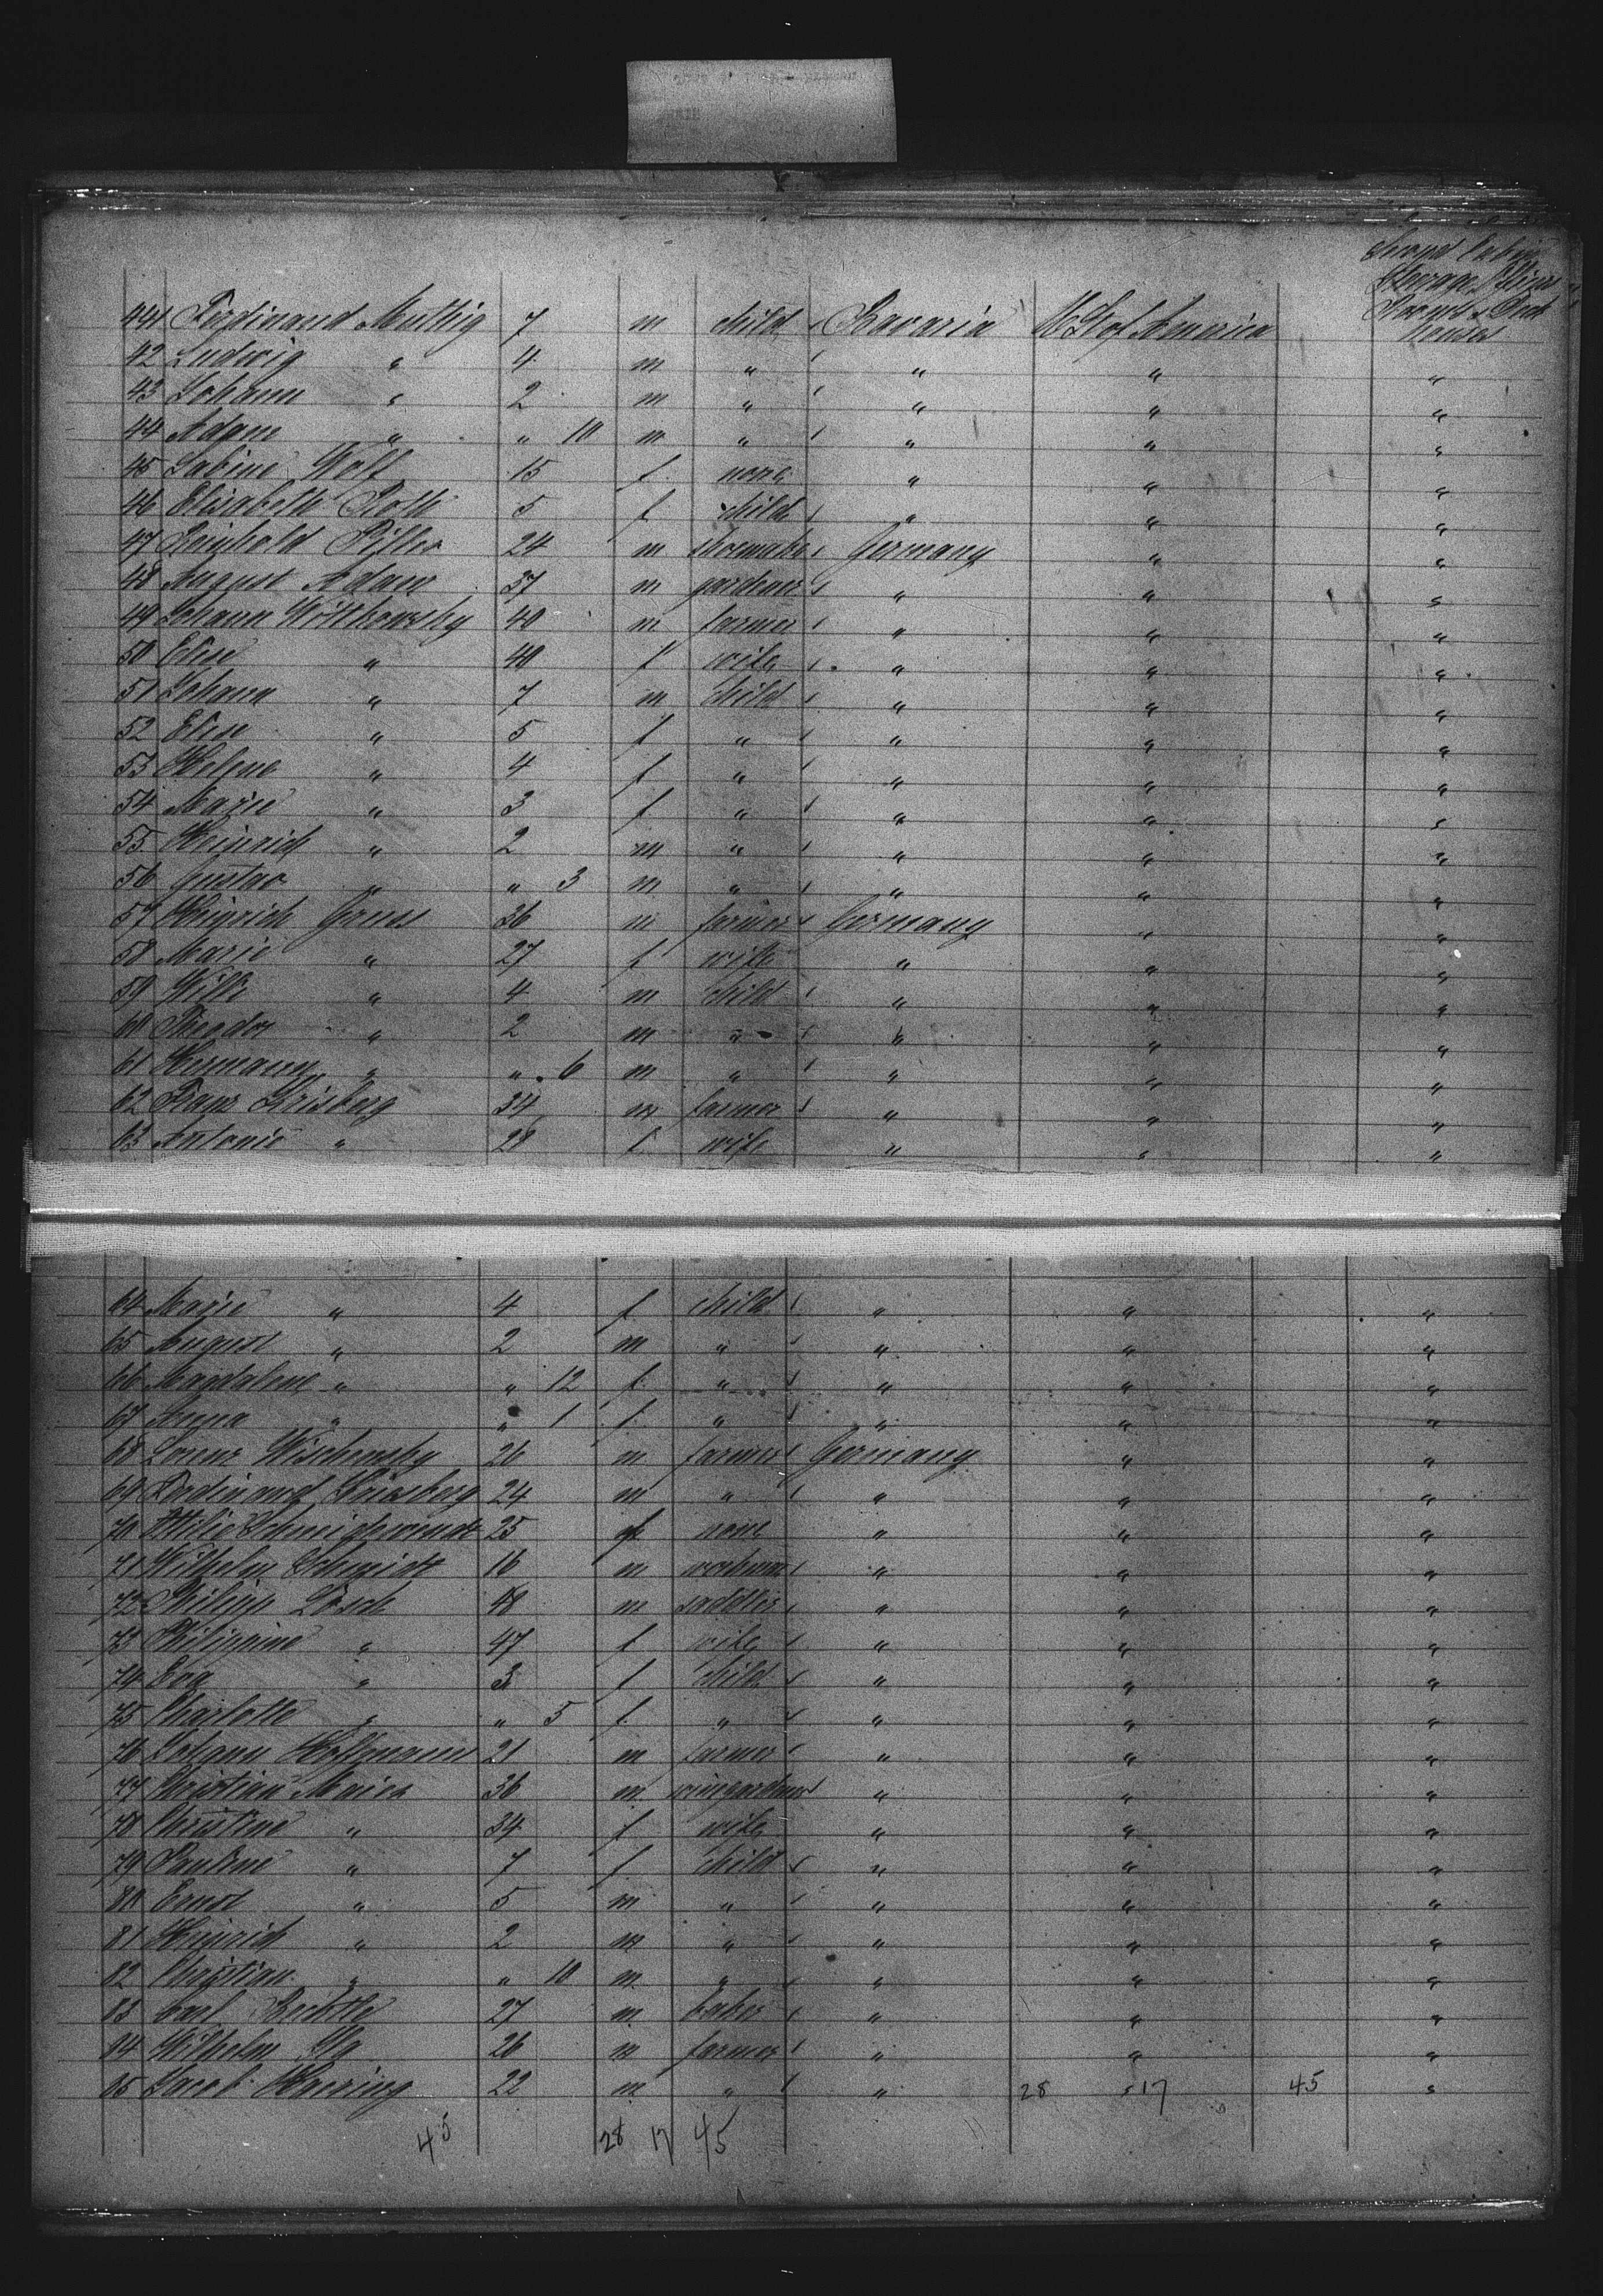 Second Cabin
Steerage
441 Ferdinand Muthig 7 m child Bavaria U St of America houses
42 Ludwig " 4 m " " " "
43 Johann " 2 m " " " "
44 Adam " " 10 m " " " "
45 Sabine Wolf 15 f none " " "
46 Elisabeth Roth 5 f child " " "
47 Reinhold 24 m shoemaker Germany " "
48 August Adam 37 m gardener " " "
49 Johann 40 m farmer " " "
50 Elise " 40 f wife " " "
51 Johann " 7 m child " " "
52 Elise " 5 f " " " "
53 Helene " 4 f " " " "
54 Marie " 3 f " " " "
55 Heinrich " 2 m " " " "
56 Gustav " " 3 m " " " "
57 Heinrich Gruss 36 m farmer Germany " "
58 Marie " 27 f wife " " "
59 " 4 m child " " "
60 Theodor " 2 m " " " "
61 Hermann " " 6 m " " " "
62 Franz Krisberg 34 m farmer " " "
63 Antonie " 28 f wife " " "
64 Marie " 4 f child " " "
65 August " 2 m " " " "
66 Magdalene " " 12 f " " " "
67 Anna " " 1 f " " " "
68 Lorenz 26 m farmer Germany " "
69 Ferdinand Krisberg 24 m " " " "
70 Ottilie 25 f none " " "
71 Wilhelm Schmidt 16 m workman " " "
72 Philipp Lösch 48 m saddler " " "
73 Philippine " 47 f wife " " "
74 Eva " 3 f child " " "
75 Charlotte " " 5 f " " " "
76 Johann Hofmann 21 m farmer " " "
77 Christian Maier 36 m winegardner " " "
78 Christine " 34 f wife " " "
79 Pauline " 7 f child " " "
80 Ernst " 5 m " " " "
81 Heinrich " 2 m " " " "
82 Christian " " 10 m " " " "
83 Carl 27 m baker " " "
84 Wilhelm 26 m farmer " " "
85 Jacob Haering 22 m " " 28 17 45 "
45 28 17 45